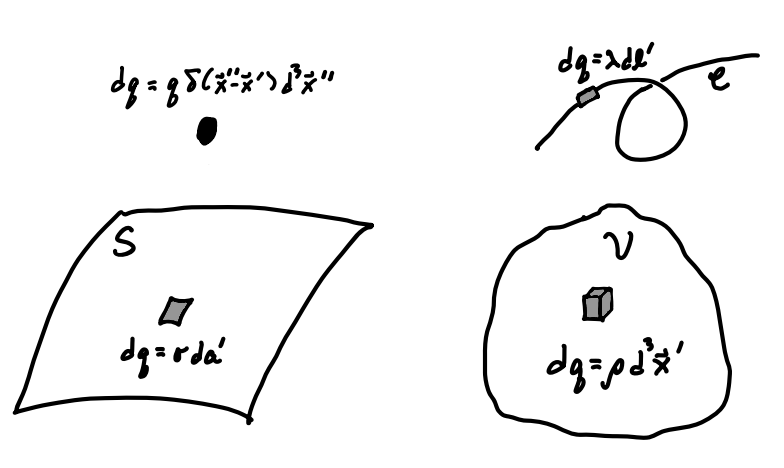 dq = q δ(x⃗''-x⃗')d³x⃗''
dq = λdl'
C
S
dq = σ da'
V
dq = ρ d³x⃗'